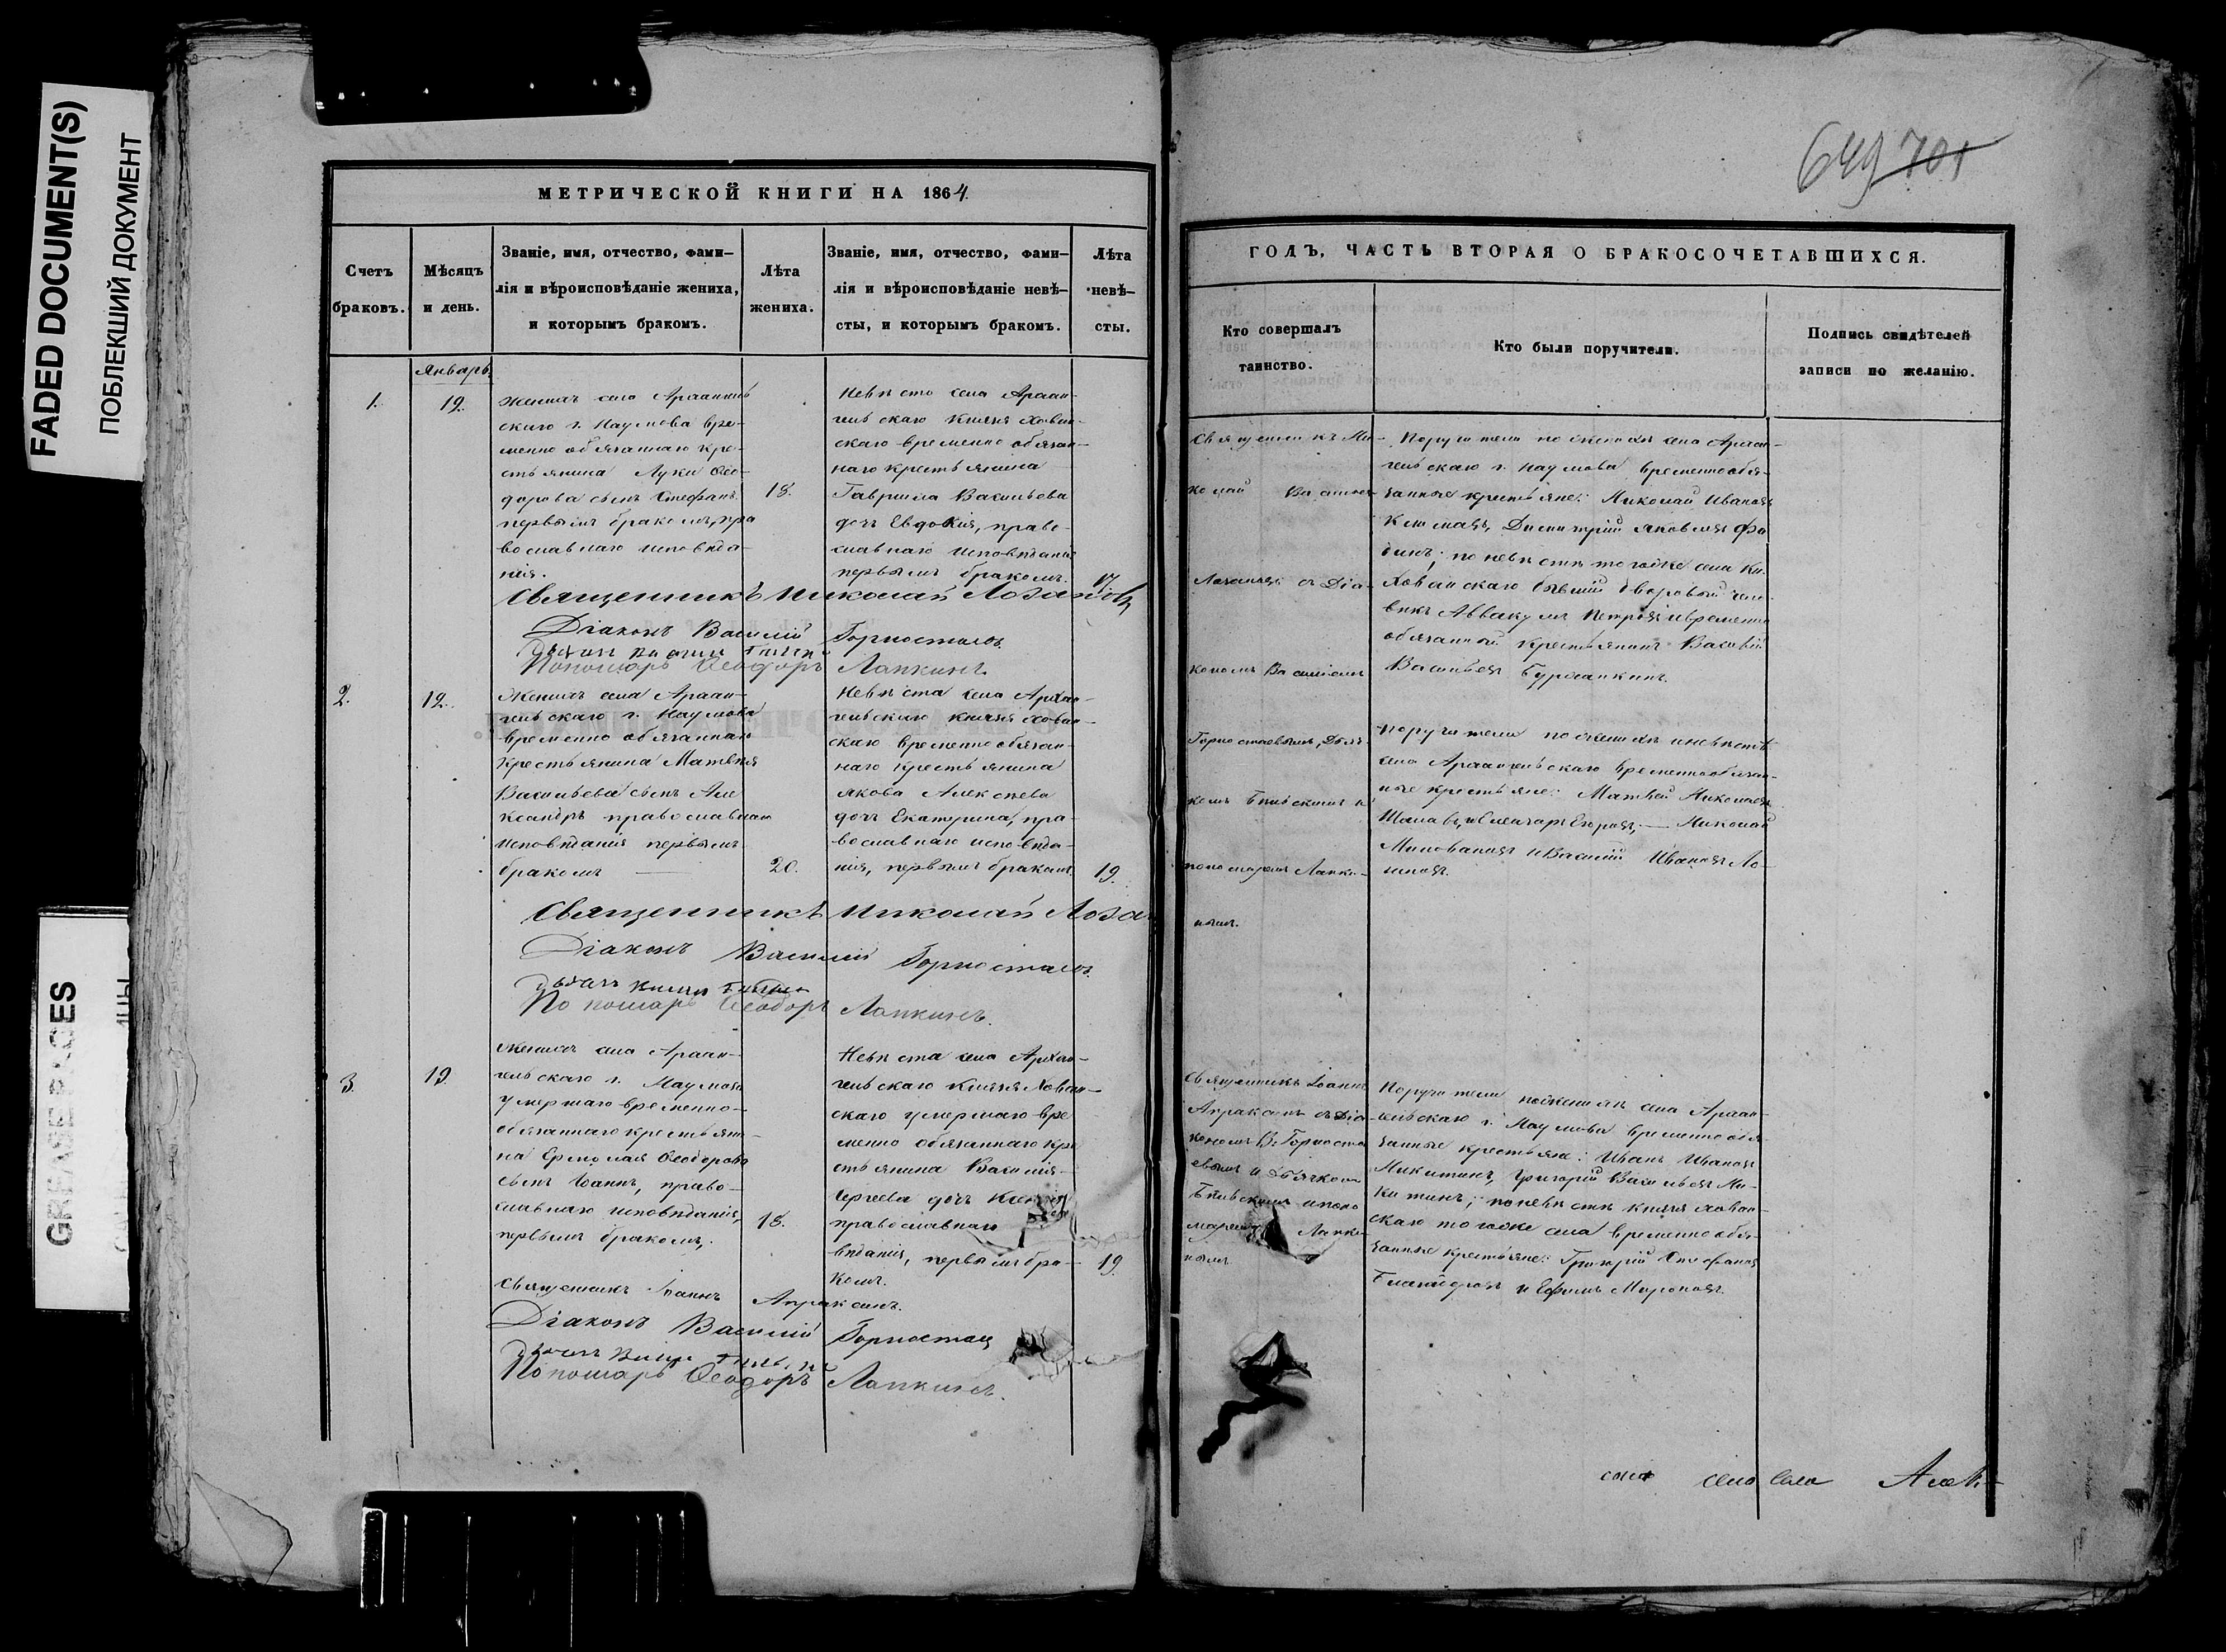 FADED DOCUMENT(S)
ПОБЛЕКШИЙ ДОКУМЕНТ
649 701
МЕТРИЧЕСКОЙ КНИГИ НА 1864.
Счетъ браковъ.
Мѣсяцъ и день.
Званіе, имя, отчество, фами-
лія и вѣроисповѣданіе жениха,
и которымъ бракомъ.
Лѣта жениха.
Званіе, имя, отчество, фами-
лія и вѣроисповѣданіе невѣ-
сты, и которымъ бракомъ.
Лѣта невѣ-
сты.
Январь
1.
12.
Женихъ села Арханг
скаго г. Наумова вре-
менно обязаннаго кре-
стьянина Луки Ѳео-
дорова сынъ Стефанъ
первымъ бракомъ, пра
вославнаго исповѣда-
нія.
18.
Невѣста села Архан-
гельскаго Князя Хован-
скаго временно обязан-
наго крестьянина
Гавриила Васильева
дочь Евдокія, право-
славнаго исповѣданія
первымъ бракомъ.
17
Священникъ Николай Лозановъ
Діаконъ Василій Горностаевъ
Пономарь Ѳеодоръ Лапкинъ
2.
12.
Женихъ села Архан-
гельскаго г. Наумова
временно обязаннаго
крестьянина Матвѣя
Васильева сынъ Але
ксандръ православнаго
исповѣданія первымъ
бракомъ
20.
Невѣста села Архан-
гельскаго князя Хован-
скаго временно обязан-
наго крестьянина
Якова Алексѣева
дочь Екатерина, пра-
вославнаго исповѣда-
нія, первымъ бракомъ.
19.
Священникъ Николай Лоза
Діаконъ Василій Горностаевъ
Пономарь Ѳеодоръ Лапкинъ.
3.
19.
Женихъ села Архан-
гельскаго г. Наумова
умершаго временно-
обязаннаго крестьяни-
на Ермолая Ѳеодорова
сынъ Іоаннъ, право-
славнаго исповѣданія,
первымъ бракомъ,
18.
Невѣста села Архан-
гельскаго Князя Хован-
скаго умершаго вре
менно обязаннаго кре
стьянина Василія
Сергеева дочь
православнаго
вѣданія, первымъ бра-
комъ.
19
Священникъ Іоаннъ Апраксинъ.
Діаконъ Василій Горностаевъ
Пономарь Ѳеодоръ Лапкинъ.
ГОДЪ, ЧАСТЬ ВТОРАЯ О БРАКОСОЧЕТАВШИХСЯ.
Кто совершалъ
таинство.
Кто были поручители.
Подпись свидѣтелей
записи по желанію.
Священникъ Ни-
колай
Лозановъ съ Діа-
кономъ Василіемъ
Горностаевымъ, Дьяч-
комъ Бѣльскимъ и
пономаремъ Лапки-
нымъ.
Поручители по женихѣ села Архан-
гельскаго г. Наумова временнообя-
занные крестьяне: Николай Ивановъ
Димитрій Яковлевъ
по невѣстѣ того же села Кн.
Хованскаго бывшій дворовый чело-
вѣкъ Аввакумъ Петровъ и временно
обязанной крестьянинъ
Васильевъ
Поручители по женихѣ и невѣстѣ
села Архангельскаго временнообязан-
ные крестьяне: Матвей Николаевъ
Егоровъ, — Николай
Миловановъ и Василій Ивановъ
Священникъ Іоаннъ
Апраксинъ съ Діа-
кономъ В. Горноста
евымъ и Дьячкомъ
Бѣльскимъ и поно
маремъ Лапки-
нымъ
Поручители по женихѣ села Архан-
гельскаго г. Наумова временнообя-
занные крестьяне: Иванъ Ивановъ
Никитинъ, Григорій Васильевъ Ни-
китинъ; по невѣстѣ князя Хован-
скаго того же села временнообя-
занные крестьяне: Григорій Стефановъ
и Ефимъ Мироновъ.
села